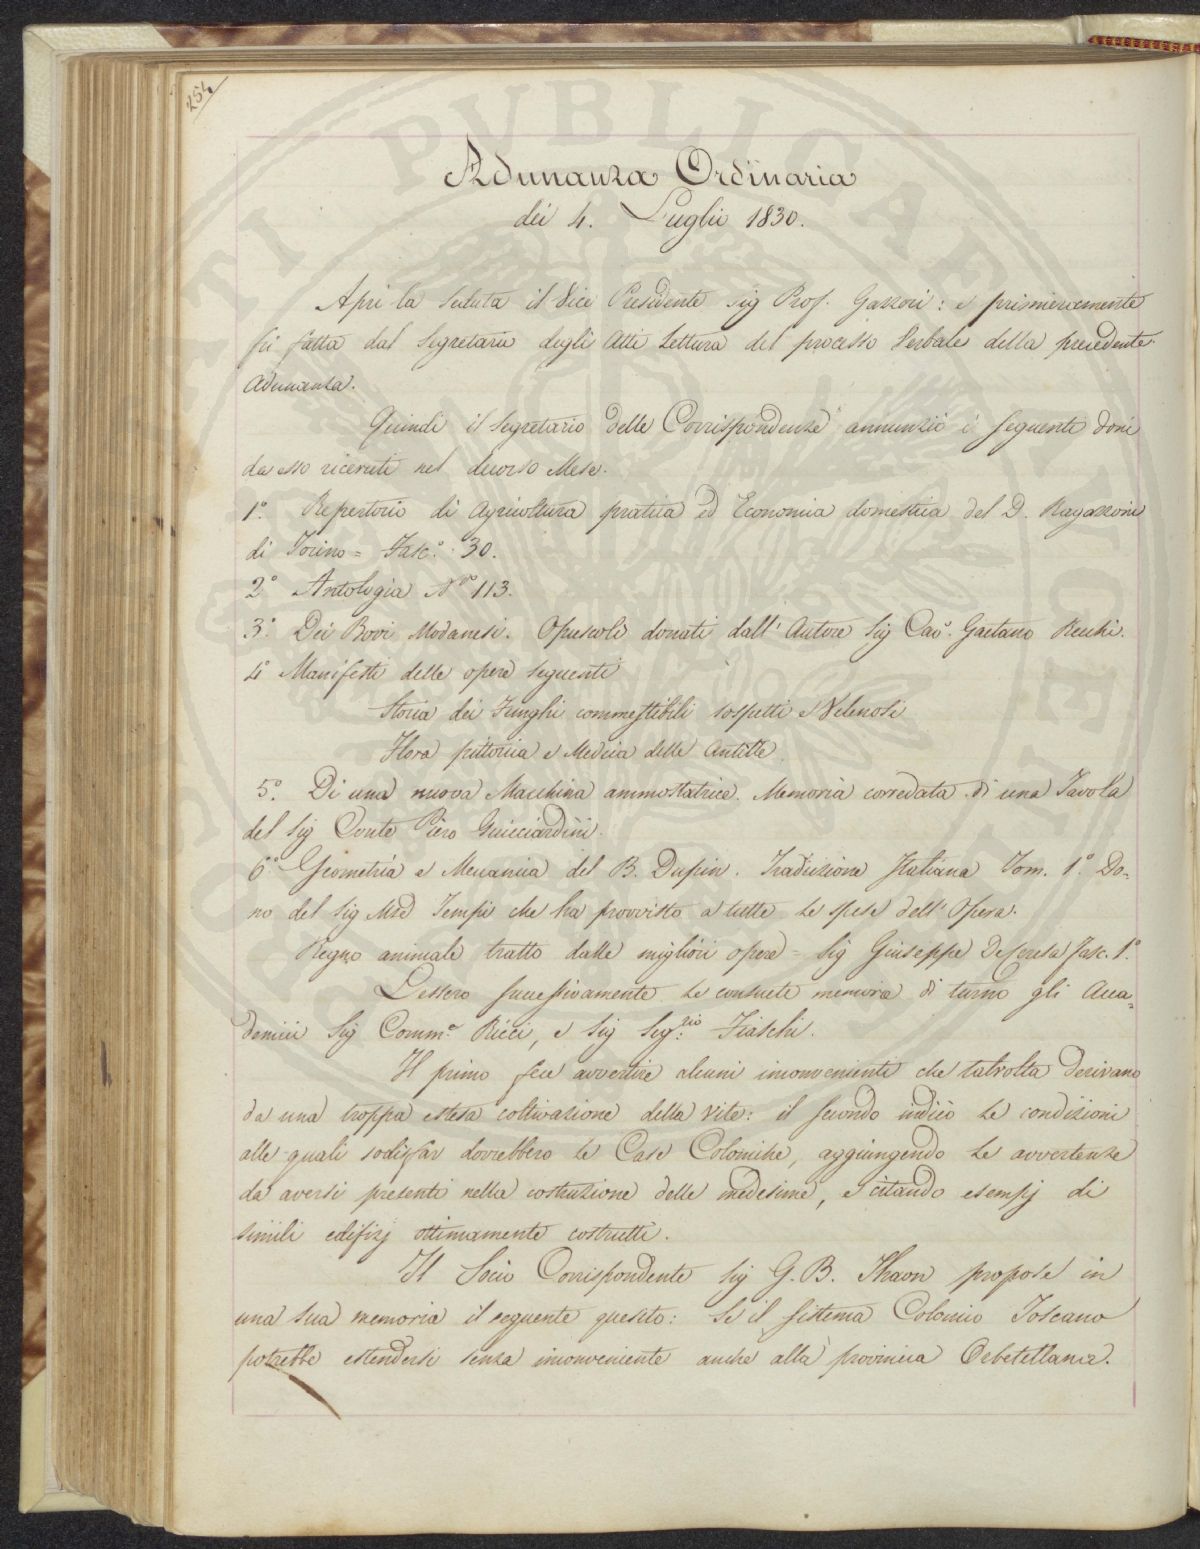 254
Adunanza Ordinaria
dei 4. Luglio 1830.
Aprì la Seduta il Vice Presidente Sig Prof. Gazzeri: e primieramente
fù fatta dal Segretario degli Atti Lettura del processo Verbale della precedente
Adunanza.
Quindi il Segretario delle Corrispondenze annunziò i seguenti doni
da esso ricevuti nel decorso Mese.
1.° Repertorio di Agricoltura pratica ed Economia domestica del D. Ragazzoni
di Torino = Fasc.° 30.
2.° Antologia N.ro 113.
3.° Dei Bovi Modanesi. Opuscoli donati dall' Autore Sig Cav. Gaetano Recchi.
4.° Manifesti delle opere seguenti
Storia dei Funghi commestibili sospetti e Velenosi
Flora pittorica e Medica delle Antille
5.° Di una nuova Macchina ammostatrice. Memoria corredata di una Tavola
del Sig Conte Piero Guicciardini.
6.° Geometria e Meccanica del B. Dupin. Traduzione Italiana Tom. 1.° Do=
no del Sig Mse Tempi che ha provvisto a tutte le spese dell' Opera.
Regno animale tratto dalle migliori opere = Sig Giuseppe De Cresa Fasc. 1.°
Lessero successivamente le consuete memorie di turno gli Acca=
demici Sig Comm.e Ricci, e Sig Seg.rio Fiaschi.
Il primo fece avvertire alcuni inconvenienti che talvolta derivano
da una troppa estesa coltivazione della vite: il secondo indicò le condizioni
alle quali sodisfar dovrebbero le Case Coloniche, aggiungendo le avvertenze
da aversi presenti nella costruzione delle medesime, e citando esempj di
simili edifizj ottimamente costrutti.
Il Socio Corrispondente Sig G. B. Thaon propose in
una sua memoria il seguente quesito: Se il Sistema Colonico Toscano
potrebbe estendersi senza inconveniente anche alla provincia Orbetellana.